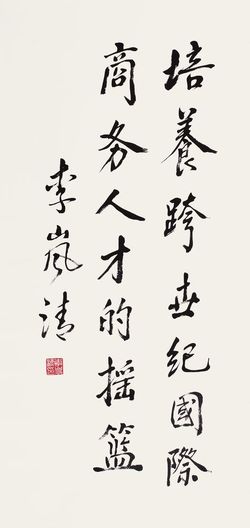 培養跨世紀國際
商务人才的摇籃
李嵐清